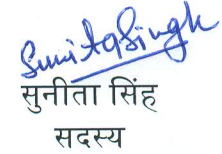 Sunita Singh
सुनीता सिंह
सदस्य